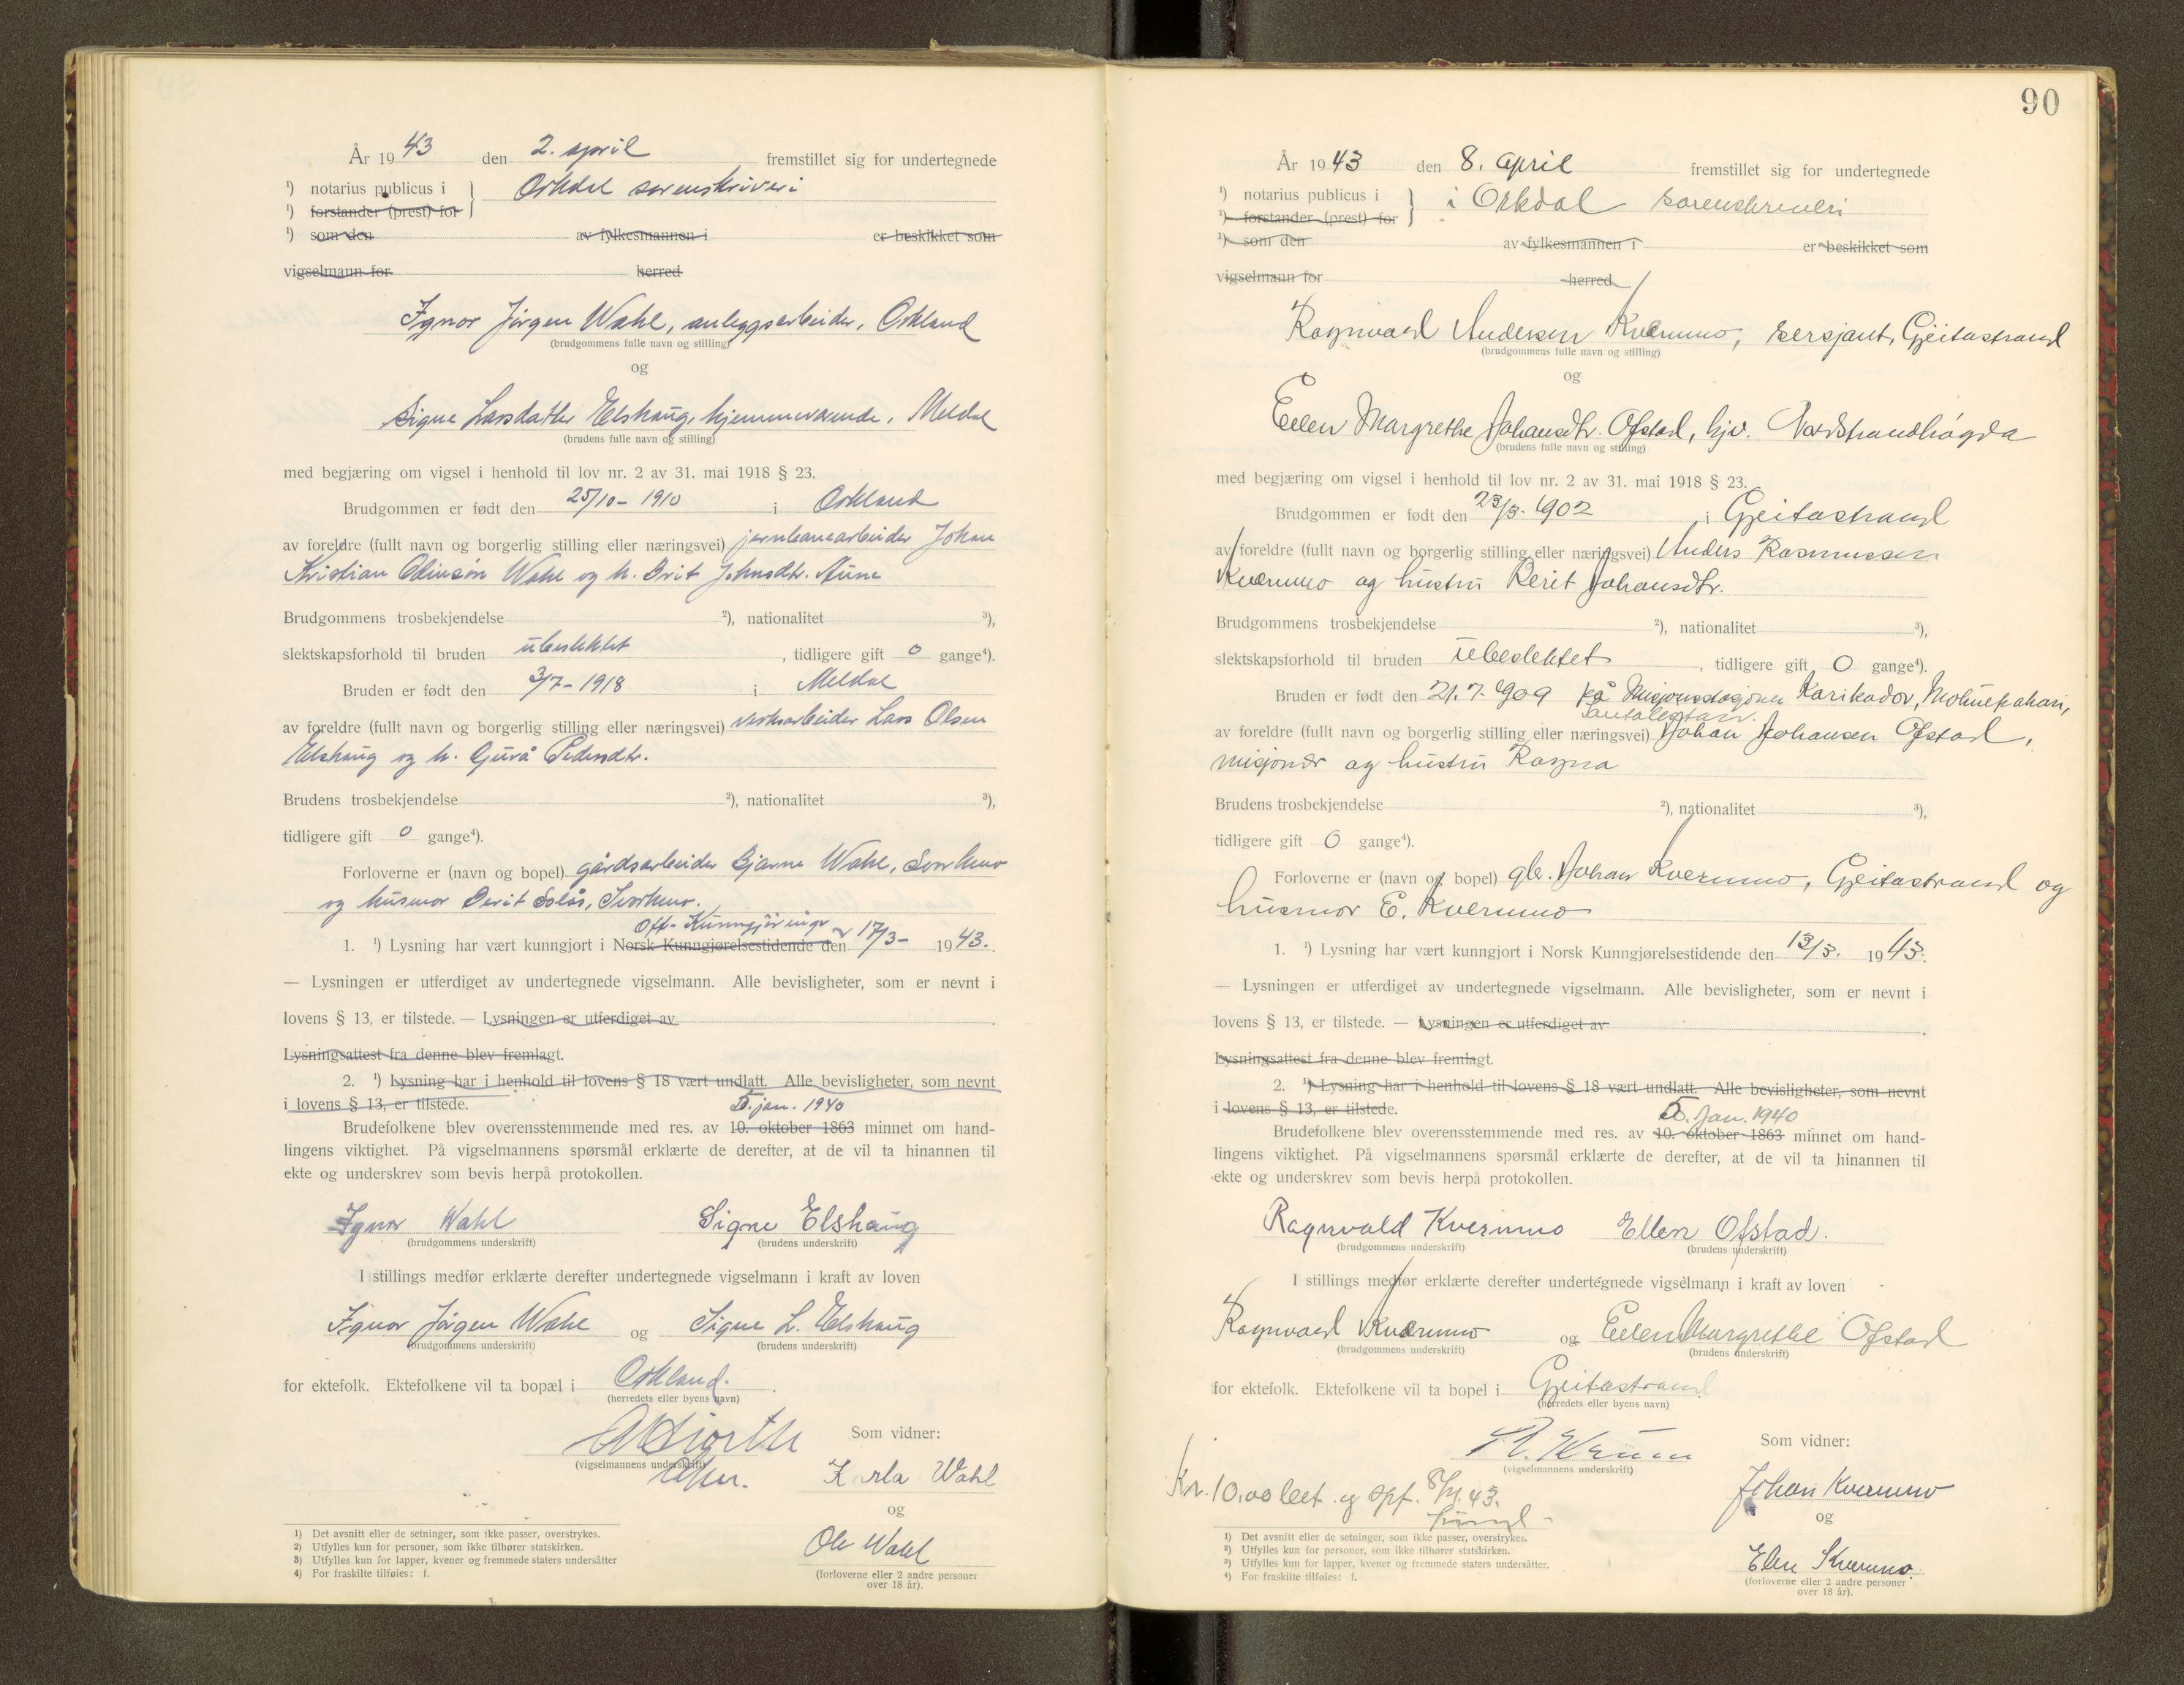 År 1943 den 2. april fremstillet sig for undertegnede
¹) notarius publicus i } Orkdal sorenskriveri
¹) forstander (prest) for
¹) som den av fylkesmannen i er beskikket som
vigselmann for herred
Ignor Jørgen Wahl, anleggsarbeider, Orkland
(brudgommens fulle navn og stilling)
og
Signe Larsdatter Elshaug, hjemmeværende, Meldal
(brudens fulle navn og stilling)
med begjæring om vigsel i henhold til lov nr. 2 av 31. mai 1918 § 23.
Brudgommen er født den 25/10-1910 i Orkland
av foreldre (fullt navn og borgerlig stilling eller næringsvei) jernbanearbeider Johan
Kristian Wahl og h. Brit Johnsdtr. Aune
Brudgommens trosbekjendelse ²), nationalitet ³),
slektskapsforhold til bruden ubeslektet, tidligere gift 0 gange⁴).
Bruden er født den 3/7-1918 i Meldal
av foreldre (fullt navn og borgerlig stilling eller næringsvei) verksarbeider Lars Olsen
Elshaug og h. Gurå Pedersdtr.
Brudens trosbekjendelse ²), nationalitet ³),
tidligere gift 0 gange⁴).
Forloverne er (navn og bopel) gårdsarbeider Bjarne Wahl, Svorkmo
og husmor Berit Solås, Svorkmo.
Off. Kunngjøringer
1. ¹) Lysning har vært kunngjort i Norsk Kunngjørelsestidende den 17/3- 1943.
— Lysningen er utferdiget av undertegnede vigselmann. Alle bevisligheter, som er nevnt i
lovens § 13, er tilstede. — Lysningen er utferdiget av
Lysningsattest fra denne blev fremlagt.
2. ¹) Lysning har i henhold til lovens § 18 vært undlatt. Alle bevisligheter, som nevnt
i lovens § 13, er tilstede.
5. jan. 1940
Brudefolkene blev overensstemmende med res. av 10. oktober 1863 minnet om hand-
lingens viktighet. På vigselmannens spørsmål erklærte de derefter, at de vil ta hinannen til
ekte og underskrev som bevis herpå protokollen.
Ignor Wahl Signe Elshaug
(brudgommens underskrift) (brudens underskrift)
I stillings medfør erklærte derefter undertegnede vigselmann i kraft av loven
Ignor Jørgen Wahl og Signe L. Elshaug
(brudgommens underskrift) (brudens underskrift)
for ektefolk. Ektefolkene vil ta bopæl i Orkland.
(herredets eller byens navn)
Som vidner:
(vigselmannens underskrift)
Karla Wahl
og
Ole Wahl
(forloverne eller 2 andre personer
over 18 år).
1) Det avsnitt eller de setninger, som ikke passer, overstrykes.
2) Utfylles kun for personer, som ikke tilhører statskirken.
3) Utfylles kun for lapper, kvener og fremmede staters undersåtter
4) For fraskilte tilføies: f.
90
År 1943 den 8. april fremstillet sig for undertegnede
¹) notarius publicus i } i Orkdal sorenskriveri
¹) forstander (prest) for
¹) som den av fylkesmannen i er beskikket som
vigselmann for herred
Ragnvald Andersen Kvernmo, sersjant, Geitastrand
(brudgommens fulle navn og stilling)
og
Ellen Margrethe Johansdtr. Ofstad, hjv. Nordstrandhøgda
(brudens fulle navn og stilling)
med begjæring om vigsel i henhold til lov nr. 2 av 31. mai 1918 § 23.
Brudgommen er født den 23/3-1902, i Geitastrand
av foreldre (fullt navn og borgerlig stilling eller næringsvei) Anders Rasmussen
Kvernmo og hustru Berit Johansdtr.
Brudgommens trosbekjendelse ²), nationalitet ³),
slektskapsforhold til bruden ubeslektet, tidligere gift 0 gange⁴).
Bruden er født den 21.7.1909 på Misjonsstasjonen Karikador, Mohulpahari,
av foreldre (fullt navn og borgerlig stilling eller næringsvei) Johan Johansen Ofstad,
misjonær og hustru Ragna
Brudens trosbekjendelse ²), nationalitet ³),
tidligere gift 0 gange⁴).
Forloverne er (navn og bopel) gbr. Johan Kvernmo, Geitastrand og
husmor E. Kvernmo
1. ¹) Lysning har vært kunngjort i Norsk Kunngjørelsestidende den 13/3. 1943.
— Lysningen er utferdiget av undertegnede vigselmann. Alle bevisligheter, som er nevnt i
lovens § 13, er tilstede. — Lysningen er utferdiget av
Lysningsattest fra denne blev fremlagt.
2. ¹) Lysning har i henhold til lovens § 18 vært undlatt. Alle bevisligheter, som nevnt
i lovens § 13, er tilstede.
5. Jan. 1940
Brudefolkene blev overensstemmende med res. av 10. oktober 1863 minnet om hand-
lingens viktighet. På vigselmannens spørsmål erklærte de derefter, at de vil ta hinannen til
ekte og underskrev som bevis herpå protokollen.
Ragnvald Kvernmo Ellen Ofstad.
(brudgommens underskrift) (brudens underskrift)
I stillings medfør erklærte derefter undertegnede vigselmann i kraft av loven
Ragnvald Kvernmo og Ellen Margrethe Ofstad
(brudgommens underskrift) (brudens underskrift)
for ektefolk. Ektefolkene vil ta bopel i Geitastrand
(herredets eller byens navn)
Som vidner:
(vigselmannens underskrift)
Kr. 10,00 bet. og 8/4.43.
Johan Kvernmo
og
Elen Kvernmo.
(forloverne eller 2 andre personer
over 18 år).
1) Det avsnitt eller de setninger, som ikke passer, overstrykes.
2) Utfylles kun for personer, som ikke tilhører statskirken.
3) Utfylles kun for lapper, kvener og fremmede staters undersåtter.
4) For fraskilte tilføies: f.